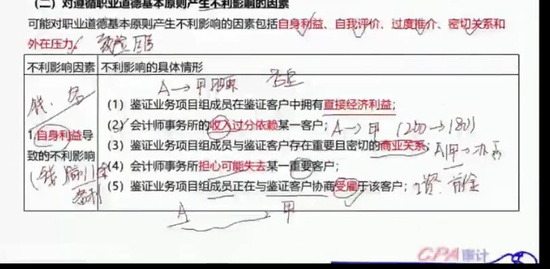 （二）对遵循职业道德基本原则产生不利影响的因素
可能对职业道德基本原则产生不利影响的因素包括自身利益、自我评价、过度推介、密切关系和
外在压力。
不利影响因素 不利影响的具体情形
A→甲
（1）鉴证业务项目组成员在鉴证客户中拥有直接经济利益；
（2）会计师事务所的收入过分依赖某一客户； A→甲 (200→180)
1.自身利益导
（3）鉴证业务项目组成员与鉴证客户存在重要且密切的商业关系；
致的不利影响
（4）会计师事务所担心可能失去某一重要客户；
（5）鉴证业务项目组成员正在与鉴证客户协商受雇于该客户；
A 甲
CPA审计